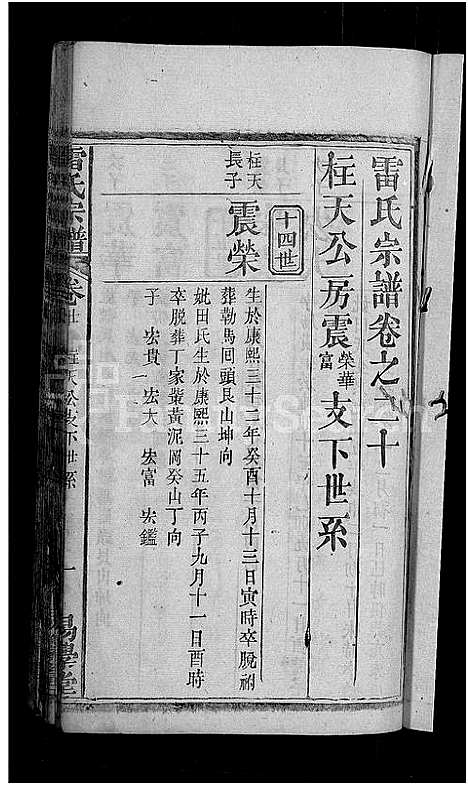 雷氏宗譜卷之二十
柱天公房震榮華富支下世系
十四世
柱天長子
震榮
生於康熙三十二年癸酉十月十三日寅時卒脫祔
葬勒馬回頭艮山坤向
妣田氏生於康熙三十五年丙子九月十一日酉時
卒脫葬丁家壪黃泥岡癸山丁向
子 宏貴 宏大 宏富 宏鑑
雷氏宗譜 卷廿 柱天公支下世系 一